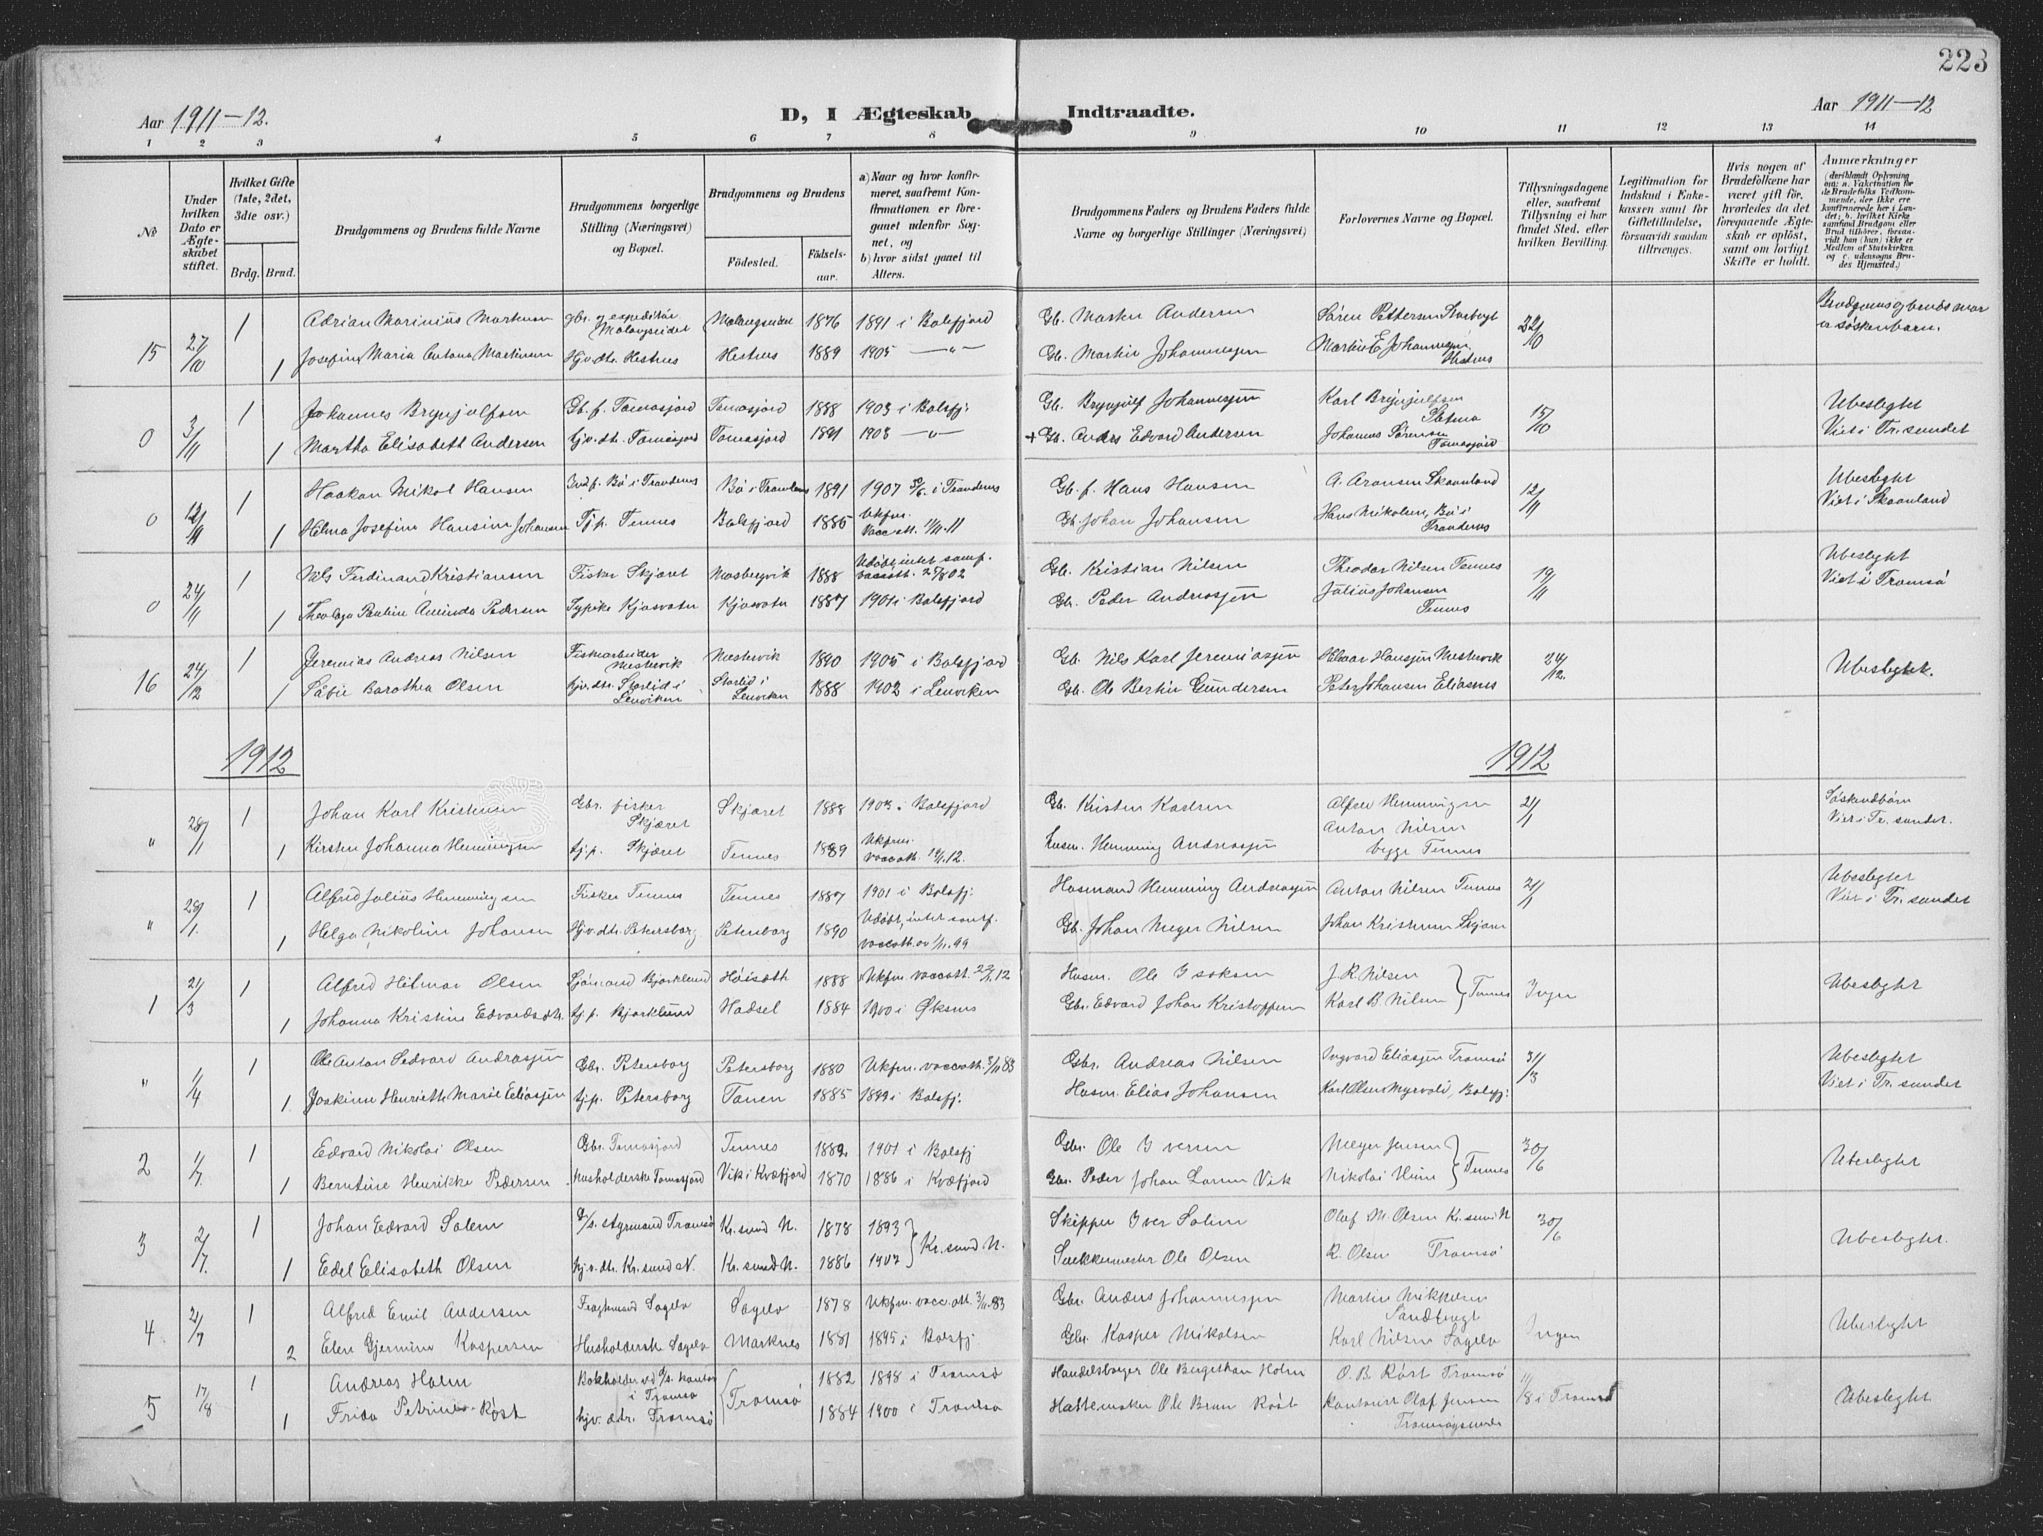 223
Aar 1911-12.
D, I Ægteskab Indtraadte.
Aar 1911-12
1 2 3 4 5 6 7 8 9 10 11 12 13 14
No
Under hvilken Dato er Ægteskabet stiftet.
Hvilket Gifte (1ste, 2det, 3die osv.)
Brdg. Brud.
Brudgommens og Brudens fulde Navne
Brudgommens borgerlige Stilling (Næringsvei) og Bopæl.
Brudgommens og Brudens
Födested.
Födselsaar.
a) Naar og hvor konfirmeret, saafremt Konfirmationen er foregaaet udenfor Sognet, og
b) hvor sidst gaaet til Alters.
Brudgommens Faders og Brudens Faders fulde Navne og borgerlige Stillinger (Næringsvei)
Forlovernes Navne og Bopæl.
Tillysningsdagene eller, saafremt Tillysning ei har fundet Sted, efter hvilken Bevilling.
Legitimation for Indskud i Enkekassen samt for Giftetilladelse, forsaavidt saadan tiltrænges.
Hvis nogen af Brudefolkene har været gift för, hvorledes da det foregaaende Ægteskab er oplöst, samt om lovligt Skifte er holdt.
Anmærkninger
(deriblandt Oplysning om: a. Vakcination for de Brudefolks Vedkommende, der ikke ere konfirmerede her i Landet; b. hvilket Kirkesamfund Brudgom eller Brud tilhörer, forsaavidt han (hun) ikke er Medlem af Statskirken og c. udensogns Brudes Hjemsted.)
15 27/10 1 Adrian Marinius Martensen Gbr. og expeditör Malangseidet Malangseidet 1876 1891 i Balsfjord Gb. Marten Andersen Sören Pettersen 22/10 Brudgom og brud var söskenbarn.
1 Josefine Maria Antona Martinsen Hjv. dtr. Hestnes Hestnes 1889 1905 —"— Gb. Martin Johannessen Martin E. Johannessen Hestnes
0 3/11 1 Johannes Brynjulfsen Gb. f. Tomasjord Tomasjord 1888 1903 i Balsfj. Gb. Brynjulf Johannessen Karl Brynjulfsen 15/10 Ubeslegtet
1 Martha Elisabeth Andersen hjv. dtr. Tomasjord Tomasjord 1891 1903 —"— + Gb. Anders Edvard Andersen Johannes Sörensen Tomasjord Viet i Tr.sundet
0 12/11 1 Haakon Mikal Hansen Ind f. Bö i Trondenes Bö i Trondenes 1891 1907 30/6 i Trondenes Gb. f. Hans Hansen A. Aronsen Skaanland 12/11 Ubeslegtet
1 Helma Josefine Hansine Johansen Tj.p. Tennes Balsfjord 1885 Ukfm. vacc. att. 11/11.11 Gb. Johan Johansen Hans Mikalsen, Bö i Trondenes Viet i Skaanland
0 24/11 1 Nils Ferdinand Kristiansen Fisker Skjæret Mosbergvik 1888 Udöbt, intet samf. vaccatt. 25/8 02 Gb. Kristian Nilsen Theodor Nilsen Tennes 19/11 Ubeslegtet
1 Theolaga Pauline Aminda Pedersen Typike Kjosvatn Kjosvatn 1887 1901 i Balsfjord Gb. Peder Andreassen Julius Johansen Tennes Viet i Tromsö
16 24/12 1 Jeremias Andreas Nilsen Fiskarbeider Mestervik Mestervik 1890 1905 i Balsfjord Gb. Nils Karl Jeremiassen Hansen Mestervik 24/12. Ubeslegtet.
1 Dorothea Olsen hjv. dtr. Storlid i Lenviken Storlid i Lenviken 1888 1902 i Lenviken Gb. Ole Bertin Gundersen Peter Johansen Eliasnes
1912 1912
" 28/1 1 Johan Karl Kristensen Gbr. fisker Skjæret Skjæret 1888 1903 i Balsfjord Gb. Kristen Karlsen Alfred Hemmingsen 21/1 Söskendbörn
1 Kirsten Johanna Hemmingsen tj.p. Skjæret Tennes 1889 Ukfm. vacc. att. 19/1.12. Husm. Hemming Andreassen Anton Nilsen begge Tennes Viet i Tr.sundet.
" 28/1. 1 Alfred Julius Hemmingsen Fisker Tennes Tennes 1887 1901 i Balsfj. Husmand Hemming Andreassen Anton Nilsen Tennes 21/1 Ubeslegtet
1 Helga Nikoline Johansen Hjv. dtr. Petersborg Petersborg 1890 Udöbt, intet samf. vaccatt. av 1/11.99 Gb. Johan Meyer Nilsen Johan Kristensen Skjæret Viet i Tr.sundet
1 21/3 1 Alfred Hilmar Olsen Sjömand Bjorklund Höisæth 1888 Ukfm. vaccatt. 22/2.12 Husm. Ole Isaksen J. R. Nilsen Ingen Ubeslegtet
1 Johanna Kristine Edvardsdtr. tj.p. Bjorklund Hadsel 1884 1900 i Öksnes Gbr. Edvard Johan Kristoffersen Karl B. Nilsen } Tennes
" 1/4 1 Ole Anton Sedvard Andreassen Gbr. Petersborg Petersborg 1880 Ukfm. vaccatt. 3/11 83 Gbr. Andreas Nilsen Ingvard Eliassen Tromsö 31/3 Ubeslegtet
1 Joakime Henriette Marie Eliassen tj.p. Petersborg Tanen 1885 1899 i Balsfj. Husm. Elias Johansen Karl Olsen Myrvold, Balsfj. Viet i Tr.sundet
2 1/7 1 Edvard Nikolai Olsen Gbr. Tomasjord Tennes 1882 1901 i Balsfj Gbr. Ole Iversen Meyer Jensen 30/6 Ubeslegtet
1 Berntine Henrikke Pedersen Husholderske Tomasjord Vik i Kvæfjord 1870 1886 i Kvæfjord Gbr. Peder Johan Larsen Vik Nikolai } Tennes
3 2/7. 1 Johan Edvard Solem D/s. styrmand Tromsö Kr.sund N. 1878 1893 Skipper Iver Solem Olaf M. Olsen Kr.sund N 30/6 Ubeslegtet.
1 Edel Elisabeth Olsen hjv. dtr. Kr.sund N. Kr.sund N. 1886 1902 } Kr.sund N. Ole Olsen R. Olsen Tromsö
4 21/7 1 Alfred Emil Andersen Sagelv Sagelv 1878 Ukfm. vacc. att. 3/11.83 Gbr. Anders Johannessen Martin Mikkelsen Sandbugt Ingen Ubeslegtet
2 Elen Gjermine Kaspersen Husholdersk Sagelv Marknes 1881 1895 i Balsfj. Gbr. Kasper Mikalsen Karl Nilsen Sagelv
5 17/8 1 Andreas Holm Bokholder ved D/s. kontor i Tromsö { Tromsö 1882 1898 i Tromsö Handelsborger Ole Bergethon Holm O. B. Röst Tromsö 11/8 i Tromsö Ubeslegtet
1 Frida Petrine Röst hjv. dtr. Tromsö 1884 1900 i Tromsö Hattemaker Ole Brun Röst Kontorist Olaf Jensen Tromsösundet